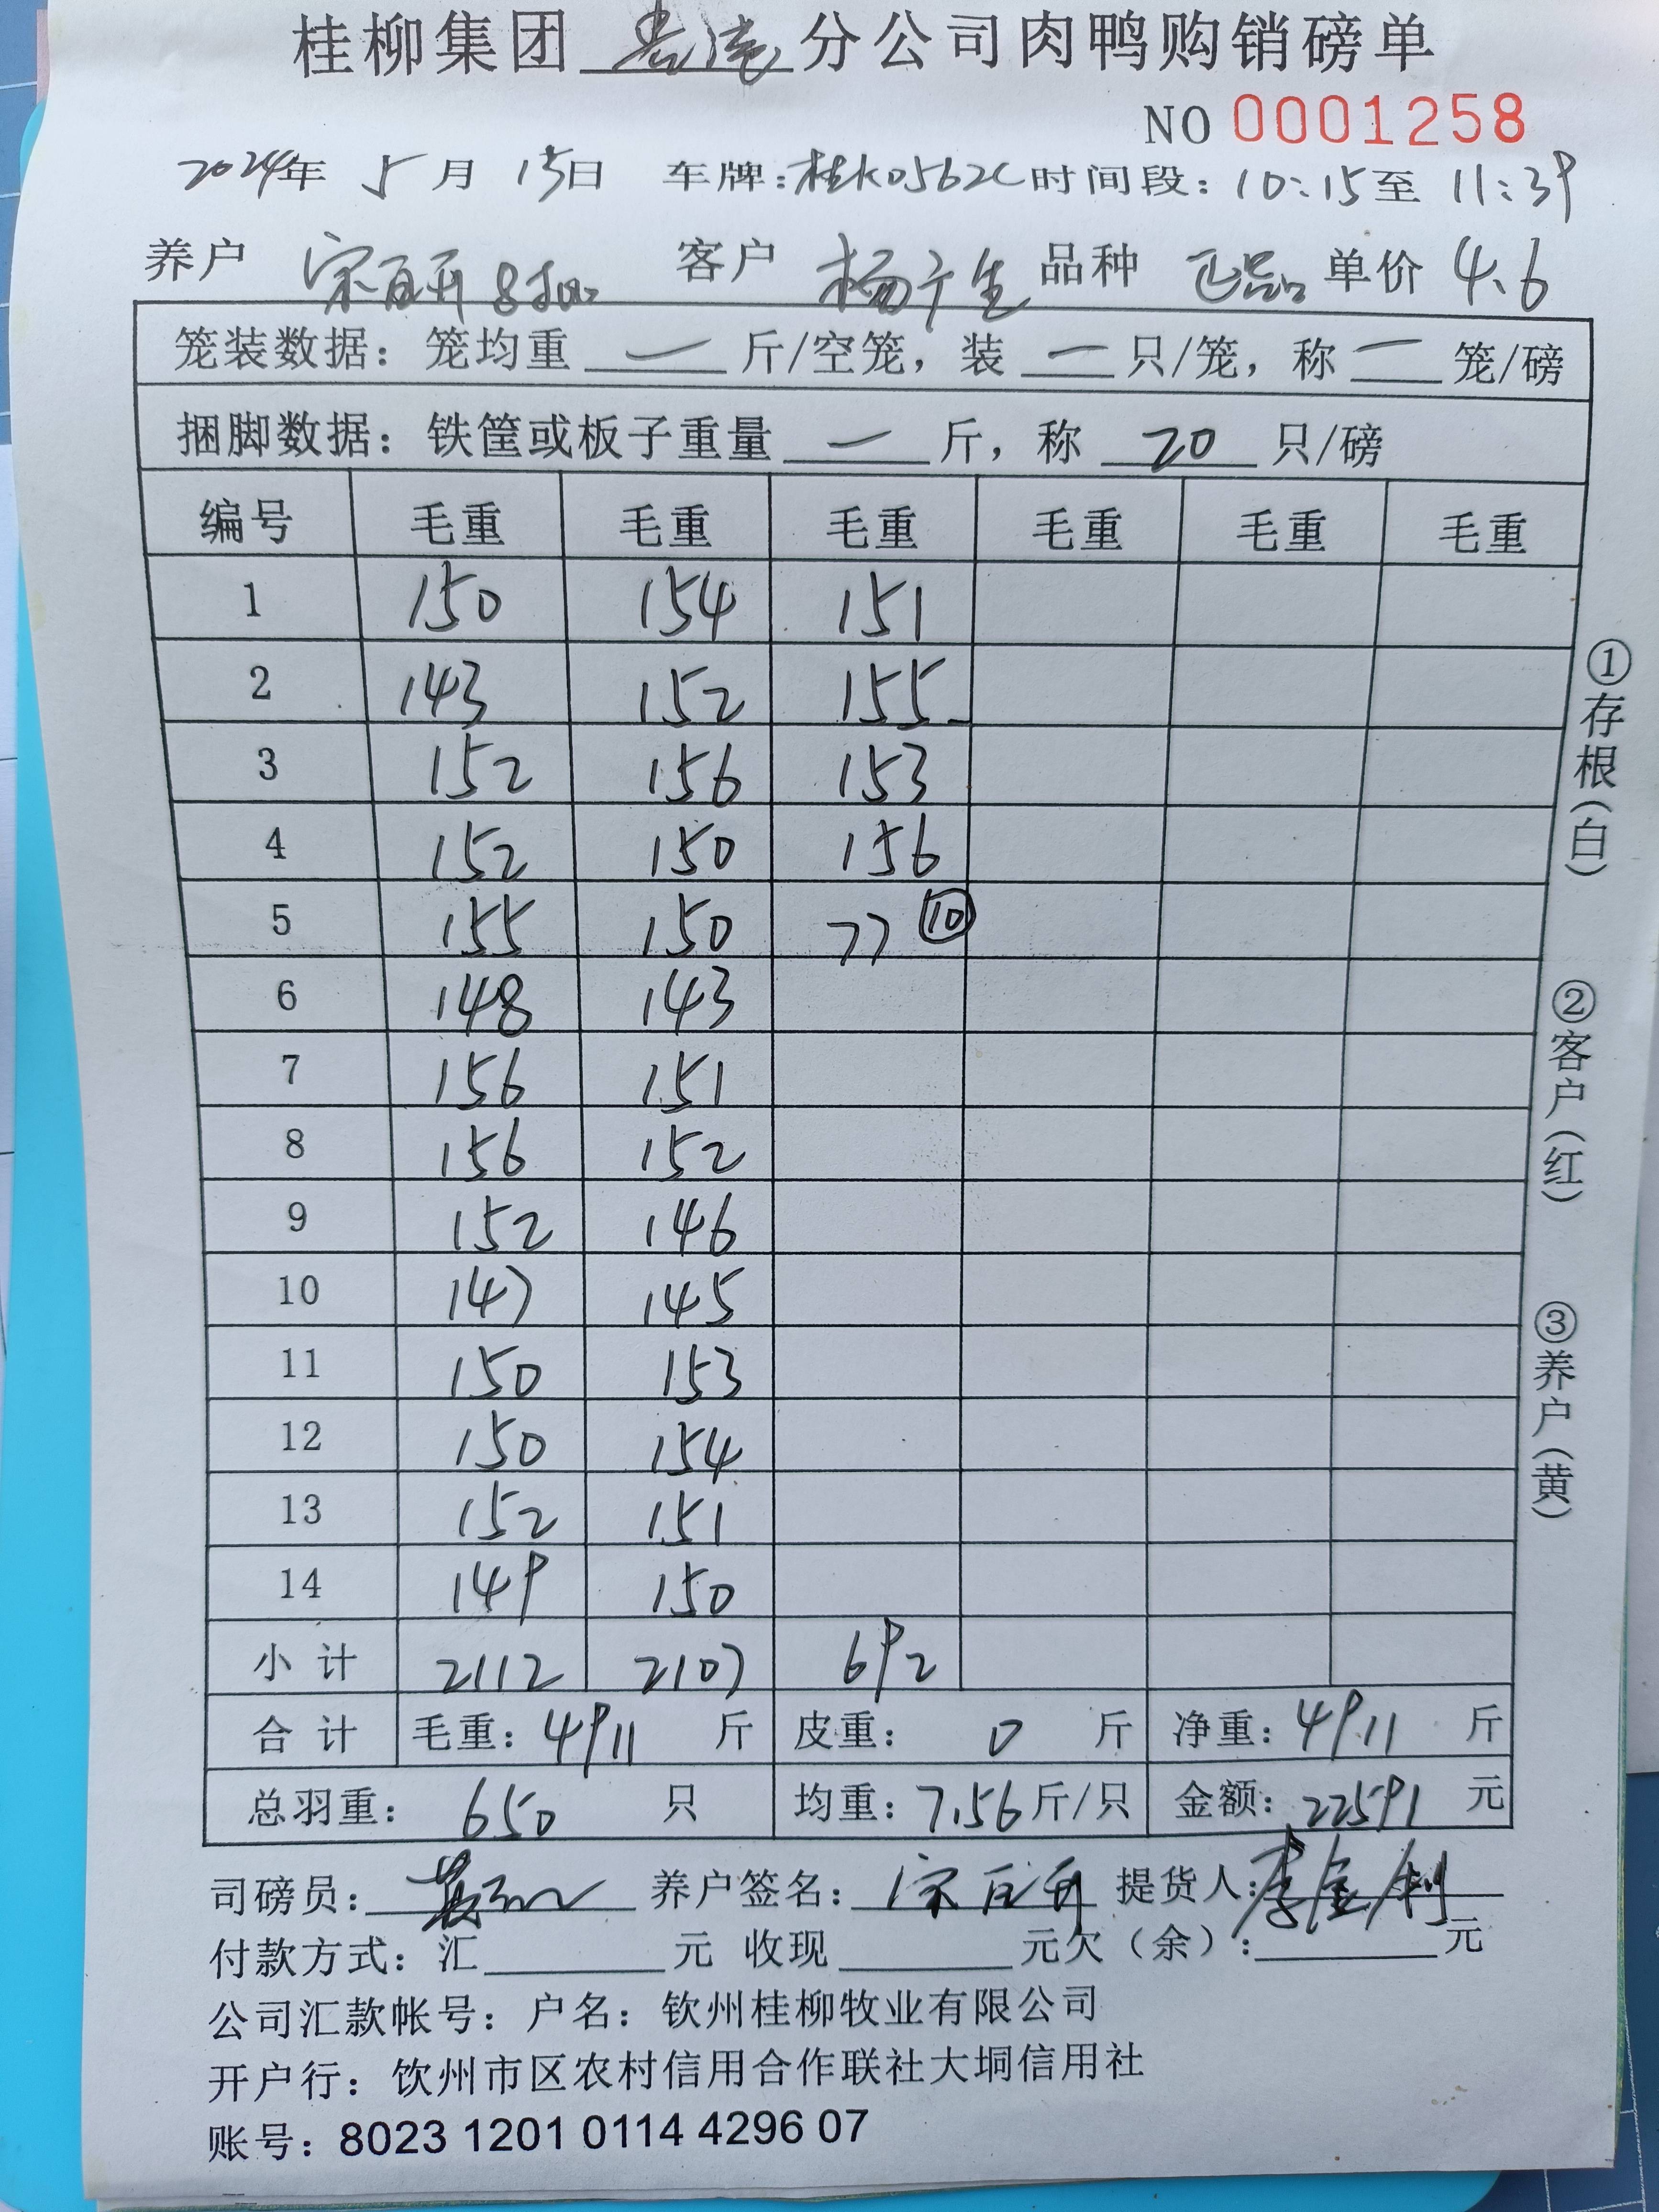 桂柳集团 分公司肉鸭购销磅单
NO 0001258
2024年 5月 15日 车牌:桂K0562C 时间段: 10:15至 11:39
养户 宋百开 客户 杨广生 品种 正品 单价 4.6
笼装数据: 笼均重 一 斤/空笼, 装 一 只/笼, 称 一 笼/磅
捆脚数据: 铁筐或板子重量 一 斤, 称 20 只/磅
编号 毛重 毛重 毛重 毛重 毛重 毛重
1 150 154 151
2 143 152 155
3 152 156 153
4 152 150 156
5 155 150 77 ⑩
6 148 143
7 156 151
8 156 152
9 152 146
10 147 145
11 150 153
12 150 154
13 152 151
14 149 150
小计 2112 2107 692
合计 毛重: 4911 斤 皮重: 0 斤 净重: 4911 斤
总羽重: 650 只 均重: 7.56 斤/只 金额: 22591 元
司磅员: 养户签名: 宋百开 提货人: 李金利
付款方式: 汇 元 收现 元欠(余): 元
公司汇款帐号: 户名: 钦州桂柳牧业有限公司
开户行: 钦州市区农村信用合作联社大垌信用社
账号: 8023 1201 0114 4296 07
①存根(白)
②客户(红)
③养户(黄)